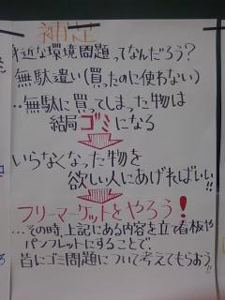 補足
身近な環境問題ってなんだろう?
無駄遣い(買ったのに使わない)
‥無駄に買ってしまった物は
結局ゴミになる
いらなくなった物を
欲しい人にあげればいい!!
フリーマーケットをやろう!
…その時、上記にある内容を立て看板や
パンフレットにすることで、
皆にゴミ問題について考えてもらおう!!